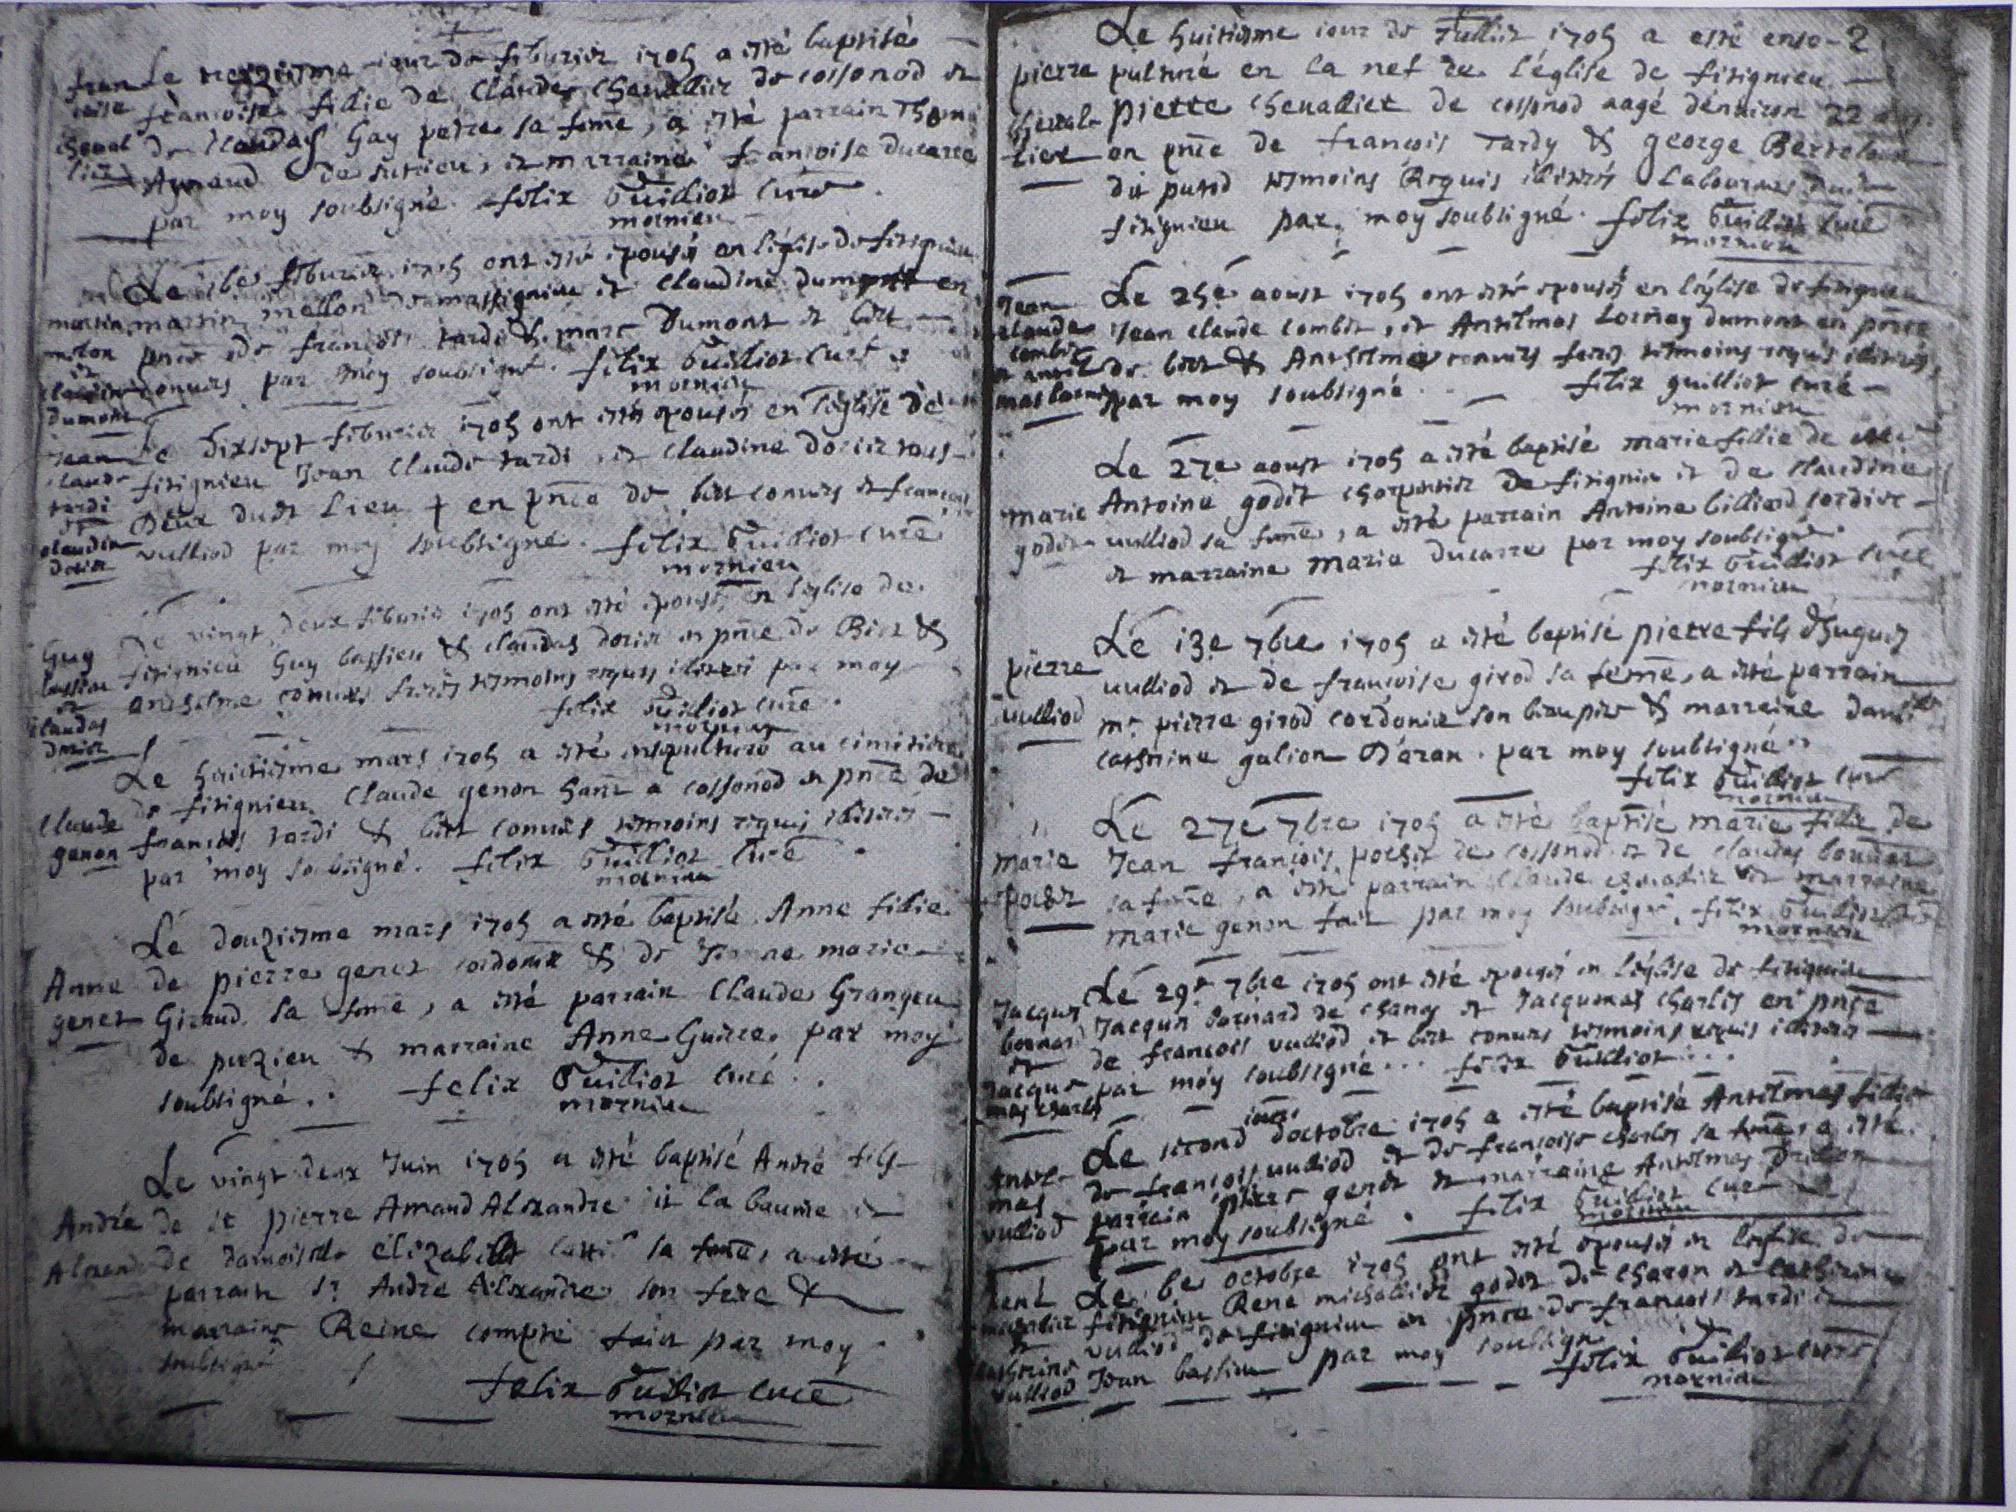 Le treiziesme jour de feburier 1705 a esté baptisé
francoise fillie de Claude Chevallier de cossonod et
de Claudas Gay petre sa feme, a esté parrain Thomas
Aynaud de surieu, et marraine francoise ducarre
par moy soubsigné. felix Guilliot curé
mornieu
fran
coise
cheval
lier
Le 16e feburier 1705 ont esté epousés en l'église de fitignieu
martin mellon de massignieu et Claudine dumont en
pnce de francois tardi & marc Dumont et bert
convers par moy soubsigné. felix Guilliot curé
mornieu
martin
melon
et
claudine
dumont
Le dixsept feburier 1705 ont esté epousés en l'église de
fitignieu Jean Claude tardi, et Claudine dorier tous
Deux dudt Lieu + en pnce de bert convers et francois
vulliod par moy soubsigné. felix Guilliot curé
mornieu
Jean
claude
tardi
et
claudine
dorier
Le vingt deux feburier 1705 ont esté epousés en l'église de
fitignieu Guy bassieu & claudas dorier en pnce de Bert &
anthelme convers freres tesmoins requis illiterés par moy
felix Guilliot curé.
mornieu
Guy
bassieu
et
claudas
dorier
Le huictiesme mars 1705 a esté ensepulturé au cimitiere
de fitignieu Claude genon hant a cossonod en pnce de
francois tardi & bert convers tesmoins requis illiterés
par moy soubsigné. felix Guilliot curé
mornieu
claude
genon
Le douziesme mars 1705 a esté baptisée Anne fillie
de pierre genet cordonier & de Jeanne marie
Giraud sa feme, a esté parrain Claude Grangeu
de puzieu & marraine Anne Guirre, par moy
soubsigné. felix Guilliot curé
mornieu
Anne
genet
Le vingt deux Juin 1705 a esté baptisé André fils
de sr pierre Amand Alexandre la baume et
de damoiselle élizabeth sa feme, a esté
parrain Sr André Alexandre son frere &
marraine Reine compte fait par moy
soubsigné
felix Guilliot curé
mornieu
André
Alexand
Le huitiesme jour de Jullier 1705 a esté ense- 2
pulturé en la nef de l'église de fitignieu
pierre chevallier de cossonod aagé d'environ 22 ans.
en pnce de francois Tardy & george Berthelon
du putod tesmoins Requis illiterés Laboureurs dudt
fitignieu par moy soubsigné. felix Guilliot curé
mornieu
pierre
cheval-
lier
Le 25e aoust 1705 ont esté epousés en l'église de fitignieu
Jean claude combet, et Antelmas Lornay dumont en pnce
de bert & Anthelme convers freres tesmoins requis illiterés,
par moy soubsigné. felix guilliot curé
mornieu
Jean
claude
combet
et antel
mas Lornay
Le 27e aoust 1705 a esté baptisé marie fillie de
Antoine godet charpentier de fitignieu et de claudine
vulliod sa feme, a esté parrain Antoine billiod cordier
et marraine marie ducarre par moy soubsigné.
felix Guilliot curé
mornieu
marie
godet
Le 13e 7bre 1705 a esté baptisé pierre fils d'hugues
vulliod et de francoise girod sa feme, a esté parrain
mr pierre girod cordonier son beaupere & marraine damlle
catherine galion D'aran. par moy soubsigné
felix Guilliot curé
mornieu
pierre
vulliod
Le 27e 7bre 1705 a esté baptisé marie fille de
Jean francois pochet de cossonod et de claudas
sa feme, a esté parrain claude chevalier et marraine
marie genon fait par moy soubsigné. felix Guilliot curé
mornieu
marie
pochet
Le 29e 7bre 1705 ont esté epousés en l'église de fitignieu
Jacques bernard de chanay et Jacquemas charles en pnce
de francois vulliod et bert convers tesmoins requis illiterés
par moy soubsigné... felix Guilliot...
Jacques
bernard
et
Jacque
mas charles
Le second jour d'octobre 1705 a esté baptisé Antelmas fillie
de francois vulliod et de francoise charles sa feme, a esté
parrain pierre genet et marraine Antelmas
par moy soubsigné. felix Guilliot curé
mornieu
Antel-
mas
vulliod
Le 6e octobre 1705 ont esté epousés en l'église de
fitignieu René michallier godet de charon et catherine
vulliod de fitignieu en pnce de francois tardi et
Jean bassieu par moy soubsigné
felix Guilliot curé
mornieu
René
michallier
et
catherine
vulliod